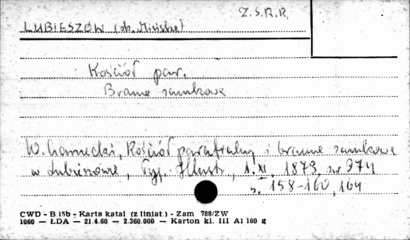 Z.S.R.R.
LUBIESZÓW (ob. Pińsk)
Kościół par.
Brama zamkowa
W. Czarnecki, Kościół parafialny i brama zamkowa
w Lubieszowie, Tyg. Illustr., 1.XI. 1873, nr 974
s. 158-160, 164
CWD - B 15b - Karta katal (z liniat.) - Zam 788/ZW
1060 — ŁDA — 21.4.60 — 2.360.000 — Karton kl. III A1 160 g